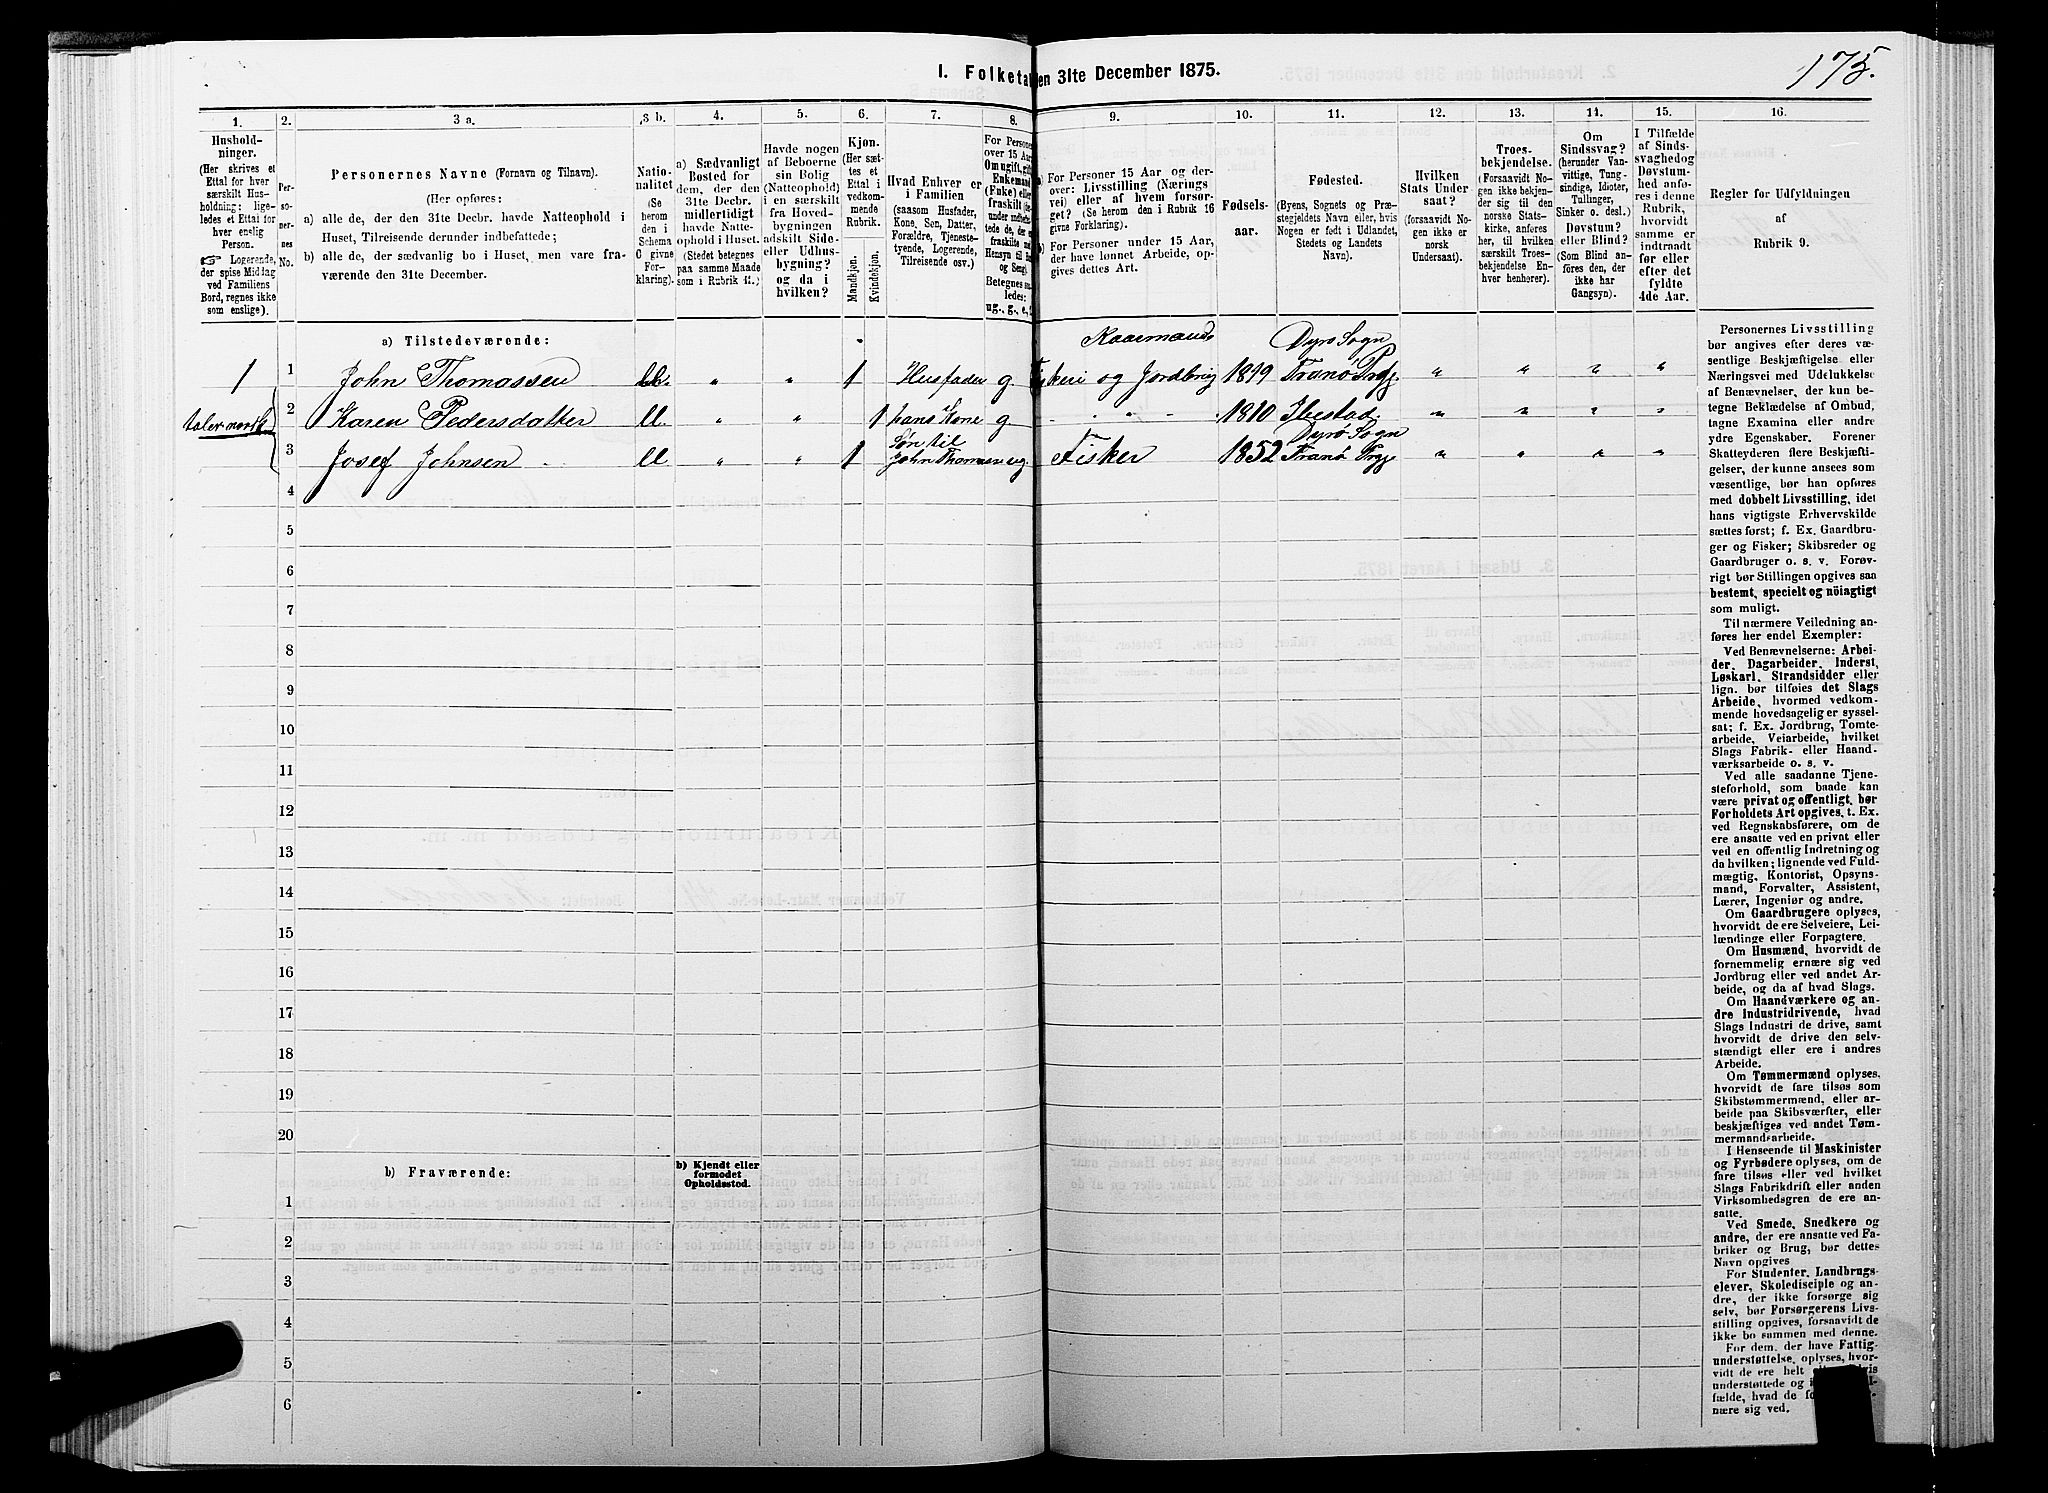 175.
I. Folketal den 31te December 1875.
1.
Husholdninger.
(Her skrives et
Ettal for hver
særskilt Husholdning;
ligeledes et Ettal for
hver enslig
Person.
Logerende,
der spise Middag
ved Familiens
Bord, regnes ikke
som enslige).
2.
Personernes
No.
3 a.
Personernes Navne (Fornavn og Tilnavn).
(Her opføres:
a) alle de, der den 31te Decbr. havde Natteophold i
Huset, Tilreisende derunder indbefattede;
b) alle de, der sædvanlig bo i Huset, men vare fraværende
den 31te December.
3 b.
Nationalitet
(Se
herom
den i
Schema
C givne
Forklaring).
4.
a) Sædvanligt
Bosted for
dem, der den
31te Decbr.
midlertidigt
havde Natteophold
i Huset.
(Stedet betegnes
paa samme Maade
som i Rubrik 11.)
5.
Havde nogen
af Beboerne
sin Bolig
(Natteophold)
i en særskilt
fra Hovedbygningen
adskilt Side-
eller Udhusbygning?
og da i
hvilken?
6.
Kjøn.
(Her sættes
et
Ettal i
vedkommende
Rubrik.
Mandkjøn.
Kvindekjøn.
7.
Hvad Enhver er
i Familien
(saasom Husfader,
Kone, Søn, Datter,
Forældre, Tjenestetyende,
Logerende,
Tilreisende osv.)
8.
For Personer
over 15 Aar:
Om ugift, gift,
Enkemand
(Enke) eller
fraskilt
Betegnes saaledes:
ug., g., e., f.
9.
a) For Personer 15 Aar og derover:
Livsstilling (Næringsvei)
eller af hvem forsørget?
(Se herom den i Rubrik 16
givne Forklaring).
b) For Personer under 15 Aar,
der have lønnet Arbeide, opgives
dettes Art.
10.
Fødselsaar.
11.
Fødested.
(Byens, Sognets og Præstegjeldets
Navn eller, hvis
Nogen er født i Udlandet,
Stedets og Landets
Navn).
12.
Hvilken
Stats Undersaat?
(forsaavidt Nogen
ikke er
norsk
Undersaat).
13.
Troesbekjendelse.
(Forsaavidt Nogen
ikke bekjender
sig til den
norske Statskirke,
anføres
her, til hvilken
særskilt Troesbekjendelse
Enhver
henhører).
14.
Om
Sindssvag?
(herunder Vanvittige,
Tungsindige,
Idioter,
Sinker o. desl.)
Døvstum?
eller Blind?
(Som Blind anføres
den, der
ikke har
Gangsyn).
15.
I Tilfælde
af Sindssvaghed
og
Døvstumhed
anføres
i denne
Rubrik,
hvorvidt
samme er
indtraadt
før eller
efter det
fyldte
4de Aar.
16.
Regler for Udfyldningen
af
Rubrik 9.
a) Tilstedeværende:
1 1 John Thomassen " " 1 Husfader g. Fiskeri og Jordbrug 1899 Dyrø Sogn Tranø Prgj. " " " "
taler norsk 2 Karen Pedersdatter " " 1 hans Kone g. " " " 1810 Ibestad. " " " "
3 Josef Johnsen " " 1 Søn til John Thomassen ug. Fisker 1852 Dyrø Sogn Tranø Prgj. " " " "
4
5
6
7
8
9
10
11
12
13
14
15
16
17
18
19
20
b) Fraværende:
b) Kjendt eller
formodet
Opholdssted.
1
2
3
4
5
6
Personernes Livsstilling
bør angives efter deres væsentlige
Beskjæftigelse eller
Næringsvei med Udelukkelse
af Benævnelser, der kun betegne
Beklædelse af Ombud,
tagne Examina eller andre
ydre Egenskaber. Forener
Skatteyderen flere Beskjæftigelser,
der kunne ansees som
væsentlige, bør han opføres
med dobbelt Livsstilling, idet
hans vigtigste Erhvervskilde
sættes først; f. Ex. Gaardbruger
og Fisker; Skibsreder og
Gaardbruger o. s. v. Forøvrigt
bør Stillingen opgives saa
bestemt, specielt og nöiagtigt
som muligt.
Til nærmere Veiledning anføres
her endel Exempler:
Ved Benævnelserne: Arbeider,
Dagarbeider, Inderst,
Løskarl, Strandsidder eller
lign. bør tilføies det Slags
Arbeide, hvormed vedkommende
hovedsagelig er sysselsat;
f. Ex. Jordbrug, Tomtearbeide,
Veiarbeide, hvilket
Slags Fabrik- eller Haandværksarbeide
o. s. v.
Ved alle saadanne Tjenesteforhold,
som baade kan
være privat og offentligt, bør
Forholdets Art opgives, t. Ex.
ved Regnskabsførere, om de
ere ansatte ved en privat eller
ved en offentlig Indretning og
da hvilken; lignende ved Fuldmægtig,
Kontorist, Opsynsmand,
Forvalter, Assistent,
Lærer, Ingeniør og andre.
Om Gaardbrugere oplyses,
hvorvidt de ere Selveiere, Leilændinge
eller Forpagtere.
Om Husmænd, hvorvidt de
fornemmelig ernære sig ved
Jordbrug eller ved andet Arbeide,
og da af hvad Slags.
Om Haandværkere og andre
Industridrivende, hvad
Slags Industri de drive, samt
hvorvidt de drive den selvstændigt
eller ere i andres
Arbeide.
Om Tømmermænd oplyses,
hvorvidt de fare tilsøs som
Skibstømmermænd, eller arbeide
paa Skibsværfter, eller
beskjæftiges ved andet Tømmermandsarbeide.
I Henseende til Maskinister
og Fyrbødere oplyses, om de
fare tilsøs eller ved hvilket
Slags Fabrikdrift eller anden
Virksomhedsgren de ere ansatte.
Ved Smede, Snedkere og
andre, der ere ansatte ved Fabriker
og Brug, bør dettes
Navn opgives
For Studenter, Landbrugselever,
Skoledisciple og andre,
der ikke forsørge sig
selv, bør Forsørgerens Livsstilling
opgives, forsaavidt de
ikke bo sammen med denne.
For dem, der have Fattigunderstøttelse,
oplyses, hvorvidt
de ere helt
understøttede og
fælde, hvad de
nære sig ved.